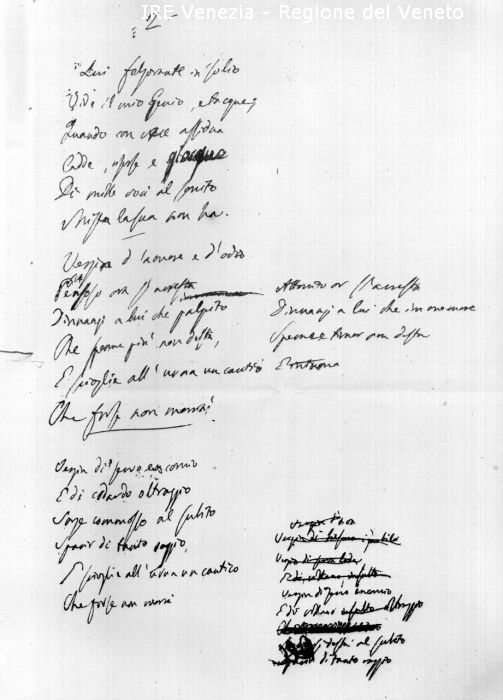 IRE Venezia - Regione del Veneto
2
Lui folgorante in solio
Vide il mio Genio, e tacque;
Quando con vece assidua
Cadde, risorse e giacque
Di mille voci al sonito
Mista la sua non ha.
Vergin d'amore e d'odio
Pensoso ora s'arresta
Dinnanzi a lui che palpito
Che speme più non desta,
E scioglie all'urna un cantico
Che forse non morrà!
Vergin di servo encomio
E di codardo oltraggio
Sorge commosso al subito
Sparir di tanto raggio,
E scioglie all'urna un cantico
Che forse non morrà
Attonito or s'arresta
Dinnanzi a lui che
Speme e timor non desta
Vergin di
Vergin di
E di villano insulto
Vergin di servo encomio
E di villano insulto oltraggio
al subito
di tanto raggio